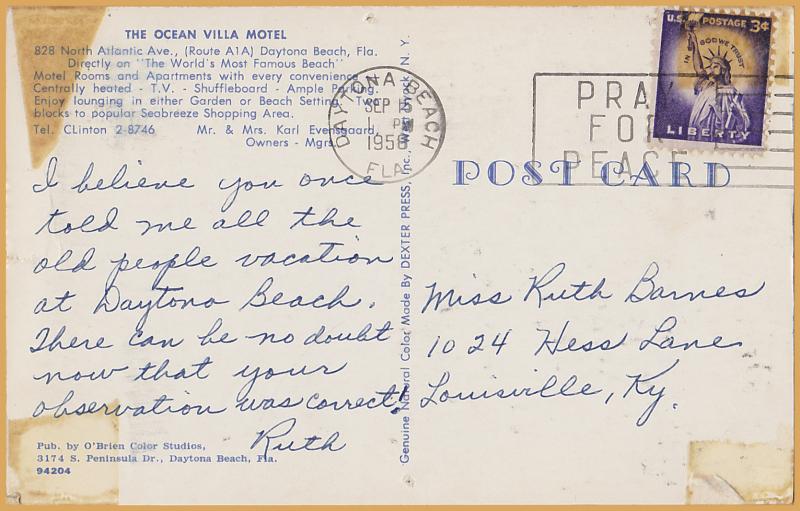 THE OCEAN VILLA MOTEL
828 North Atlantic Ave., (Route A1A) Daytona Beach, Fla.
Directly on "The World's Most Famous Beach"
Motel Rooms and Apartments with every convenience
Centrally heated - T.V. - Shuffleboard - Ample Parking.
Enjoy lounging in either Garden or Beach Setting. Two
blocks to popular Seabreeze Shopping Area.
Tel. CLinton 2-8746 Mr. & Mrs. Karl Evensgaard,
Owners - Mgrs.
I believe you once
told me all the
old people vacation
at Daytona Beach.
There can be no doubt
now that your
observation was correct!
Ruth
Pub. by O'Brien Color Studios,
3174 S. Peninsula Dr., Daytona Beach, Fla.
94204
Genuine Natural Color Made By DEXTER PRESS, Inc., West Nyack, N. Y.
DAYTONA BEACH
SEP
1 PM
1958
FLA.
PRAY
FOR
PEACE
U.S. POSTAGE 3¢
IN GOD WE TRUST
LIBERTY
POST CARD
Miss Ruth Barnes
1024 Hess Lane
Louisville, Ky.